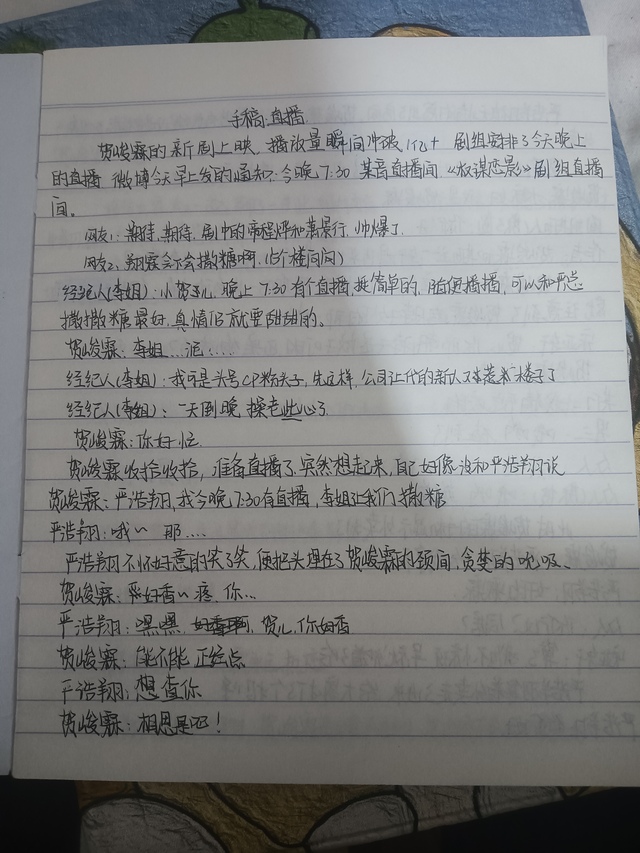 手稿:直播
贺峻霖的新剧上映 播放量瞬间冲破1亿+ 剧组安排了今天晚上
的直播 微博今天早上发的通知:今晚7:30 某音直播间《权谋恋影》剧组直播
间。
网友1:期待,期待,剧中的帝程烨和萧景行,帅爆了
网友2:翔霖会不会撒糖啊,(占个楼问问)
经纪人(李姐):小贺儿,晚上7:30有个直播,挺简单的,随便播播,可以和严总
撒撒糖最好,真情侣就要甜甜的。
贺峻霖:李姐....泥.....
经纪人(李姐):我可是头号CP粉头子,先这样,公司让代的新人又惹楼子了
经纪人(李姐):一天到晚 操老些心了
贺峻霖:你好忙
贺峻霖收拾收拾,准备直播了突然想起来,自己好像没和严浩翔说
贺峻霖:严浩翔,我今晚7:30有直播,李姐让我们撒糖
严浩翔:哦~ 那....
严浩翔不怀好意的笑了笑,便把头埋在了贺峻霖的颈间,贪婪的吮吸、
贺峻霖:好香~ 疼,你...
严浩翔:嘿嘿,贺儿,你好香
贺峻霖:能不能 正经点
严浩翔:想查你
贺峻霖:相思是吧!